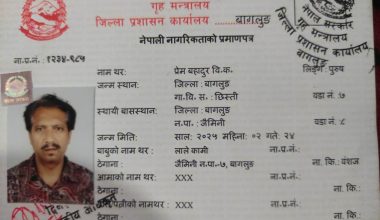 गृह मन्त्रालय
जिल्ला प्रशासन कार्यालय, बागलुङ
नेपाली नागरिकताको प्रमाणपत्र
ना.प्र.नं.: १२३४-९८५
नाम थर: प्रेम बहादुर वि.क. लिङ्ग: पुरुष
जन्म स्थान: जिल्ला: बागलुङ
गा.वि.स.: छिस्ती वडा नं: ७
स्थायी बासस्थान: जिल्ला: बागलुङ
न.पा.: जैमिनी वडा नं.: ८
जन्म मिति: साल: २०२५ महिना: ०२ गते: २४
बाबुको नाम थर: लाले कामी ना.प्र.नं.:
ठेगाना: जैमिनी न.पा-७, बागलुङ ना. कि.: वंशज
आमाको नाम थर: XXX ना.प्र.नं.:
ठेगाना: ना. कि.:
नाम थर: XXX
नेपाल सरकार
गृह मन्त्रालय
जिल्ला प्रशासन कार्यालय,
बागलुङ